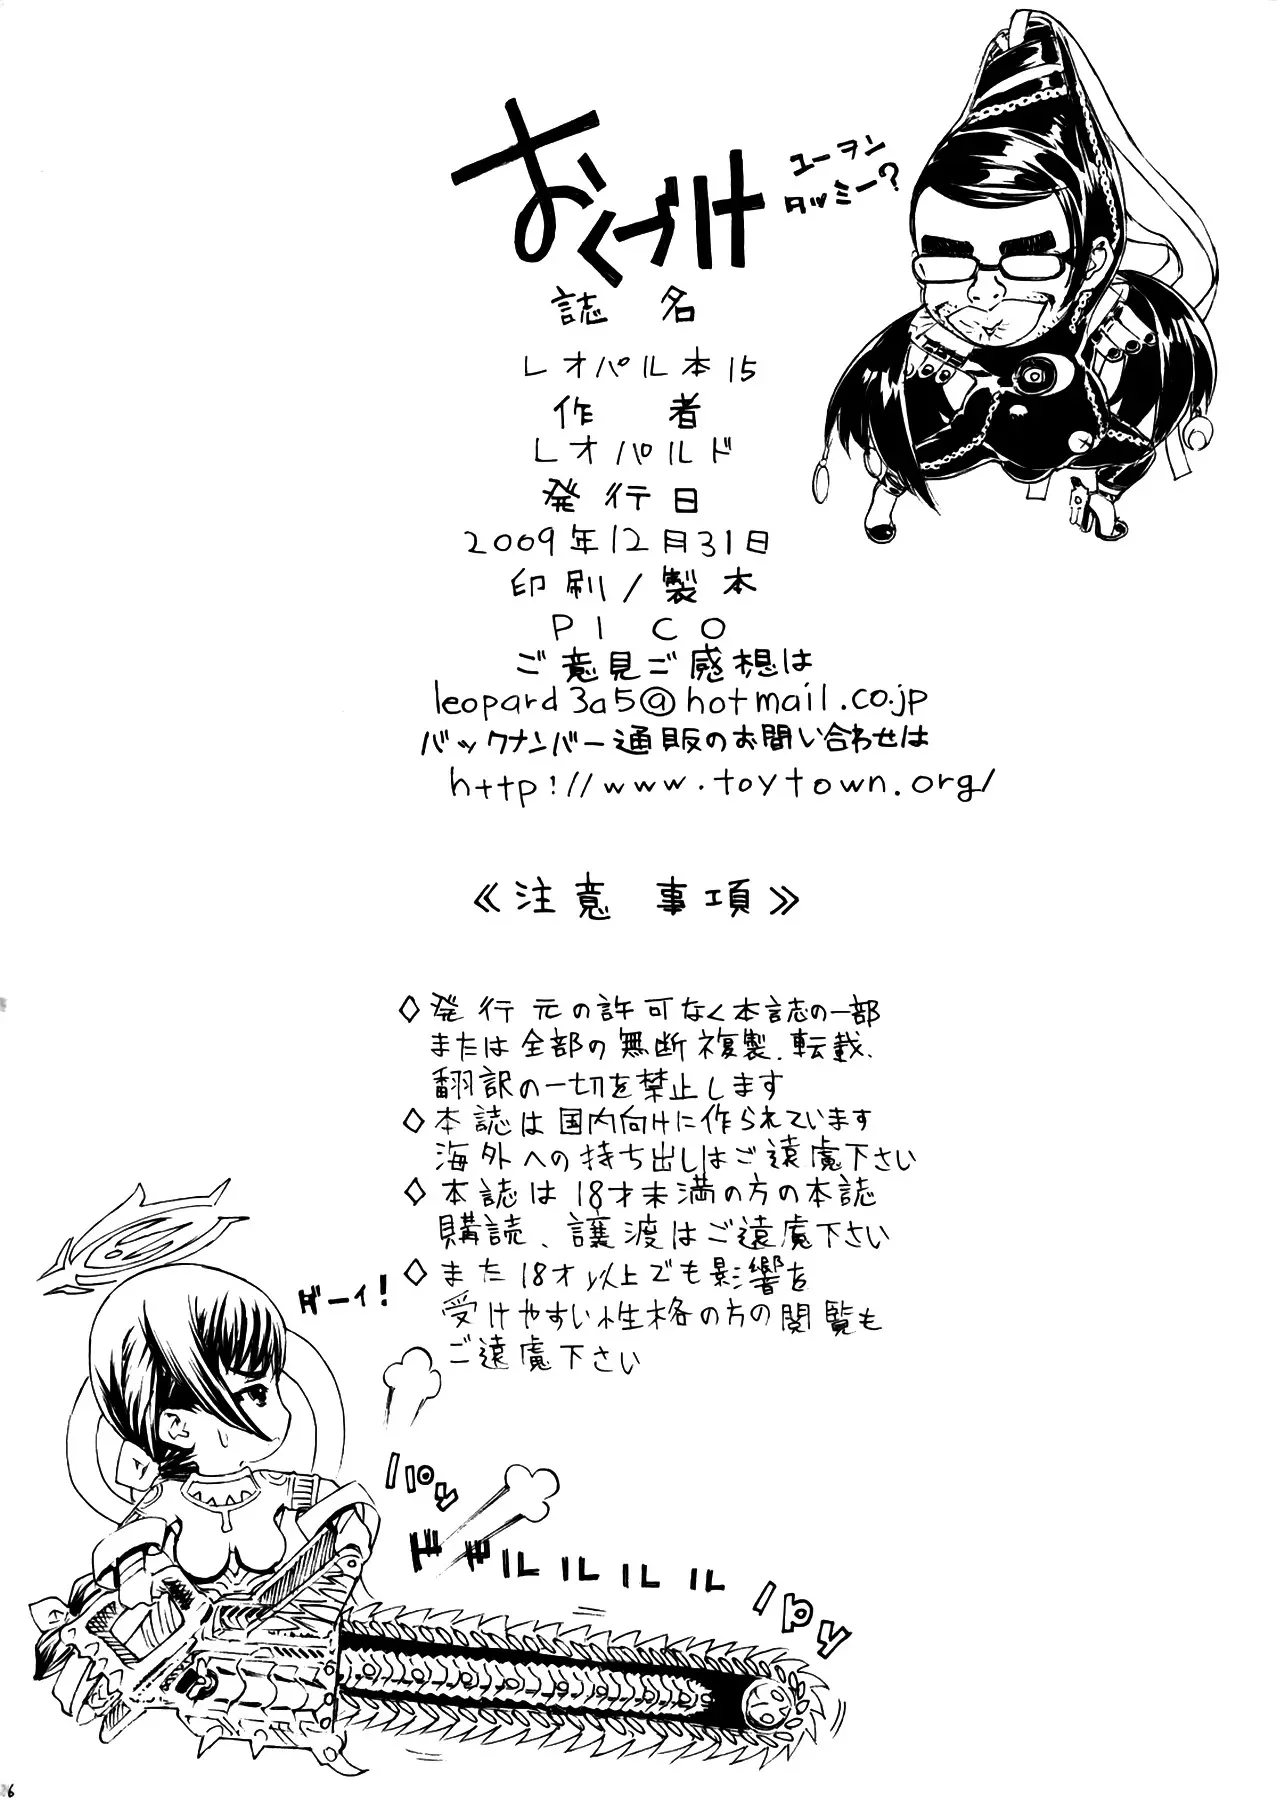 おくづけ
ユーヲン
タッミー?
誌名
レオパル本15
作者
レオパルド
発行日
2009年12月31日
印刷/製本
PICO
ご意見ご感想は
leopard3a5@hotmail.co.jp
バックナンバー通販のお問い合わせは
http://www.toytown.org/
《注意 事項》
◇発行元の許可なく本誌の一部
または全部の無断複製、転載、
翻訳の一切を禁止します
◇本誌は国内向けに作られています
海外への持ち出しはご遠慮下さい
◇本誌は18才未満の方の本誌
購読、譲渡はご遠慮下さい
◇また18才以上でも影響を
受けやすい性格の方の閲覧も
ご遠慮下さい
ダーイ!
ドドルルルル